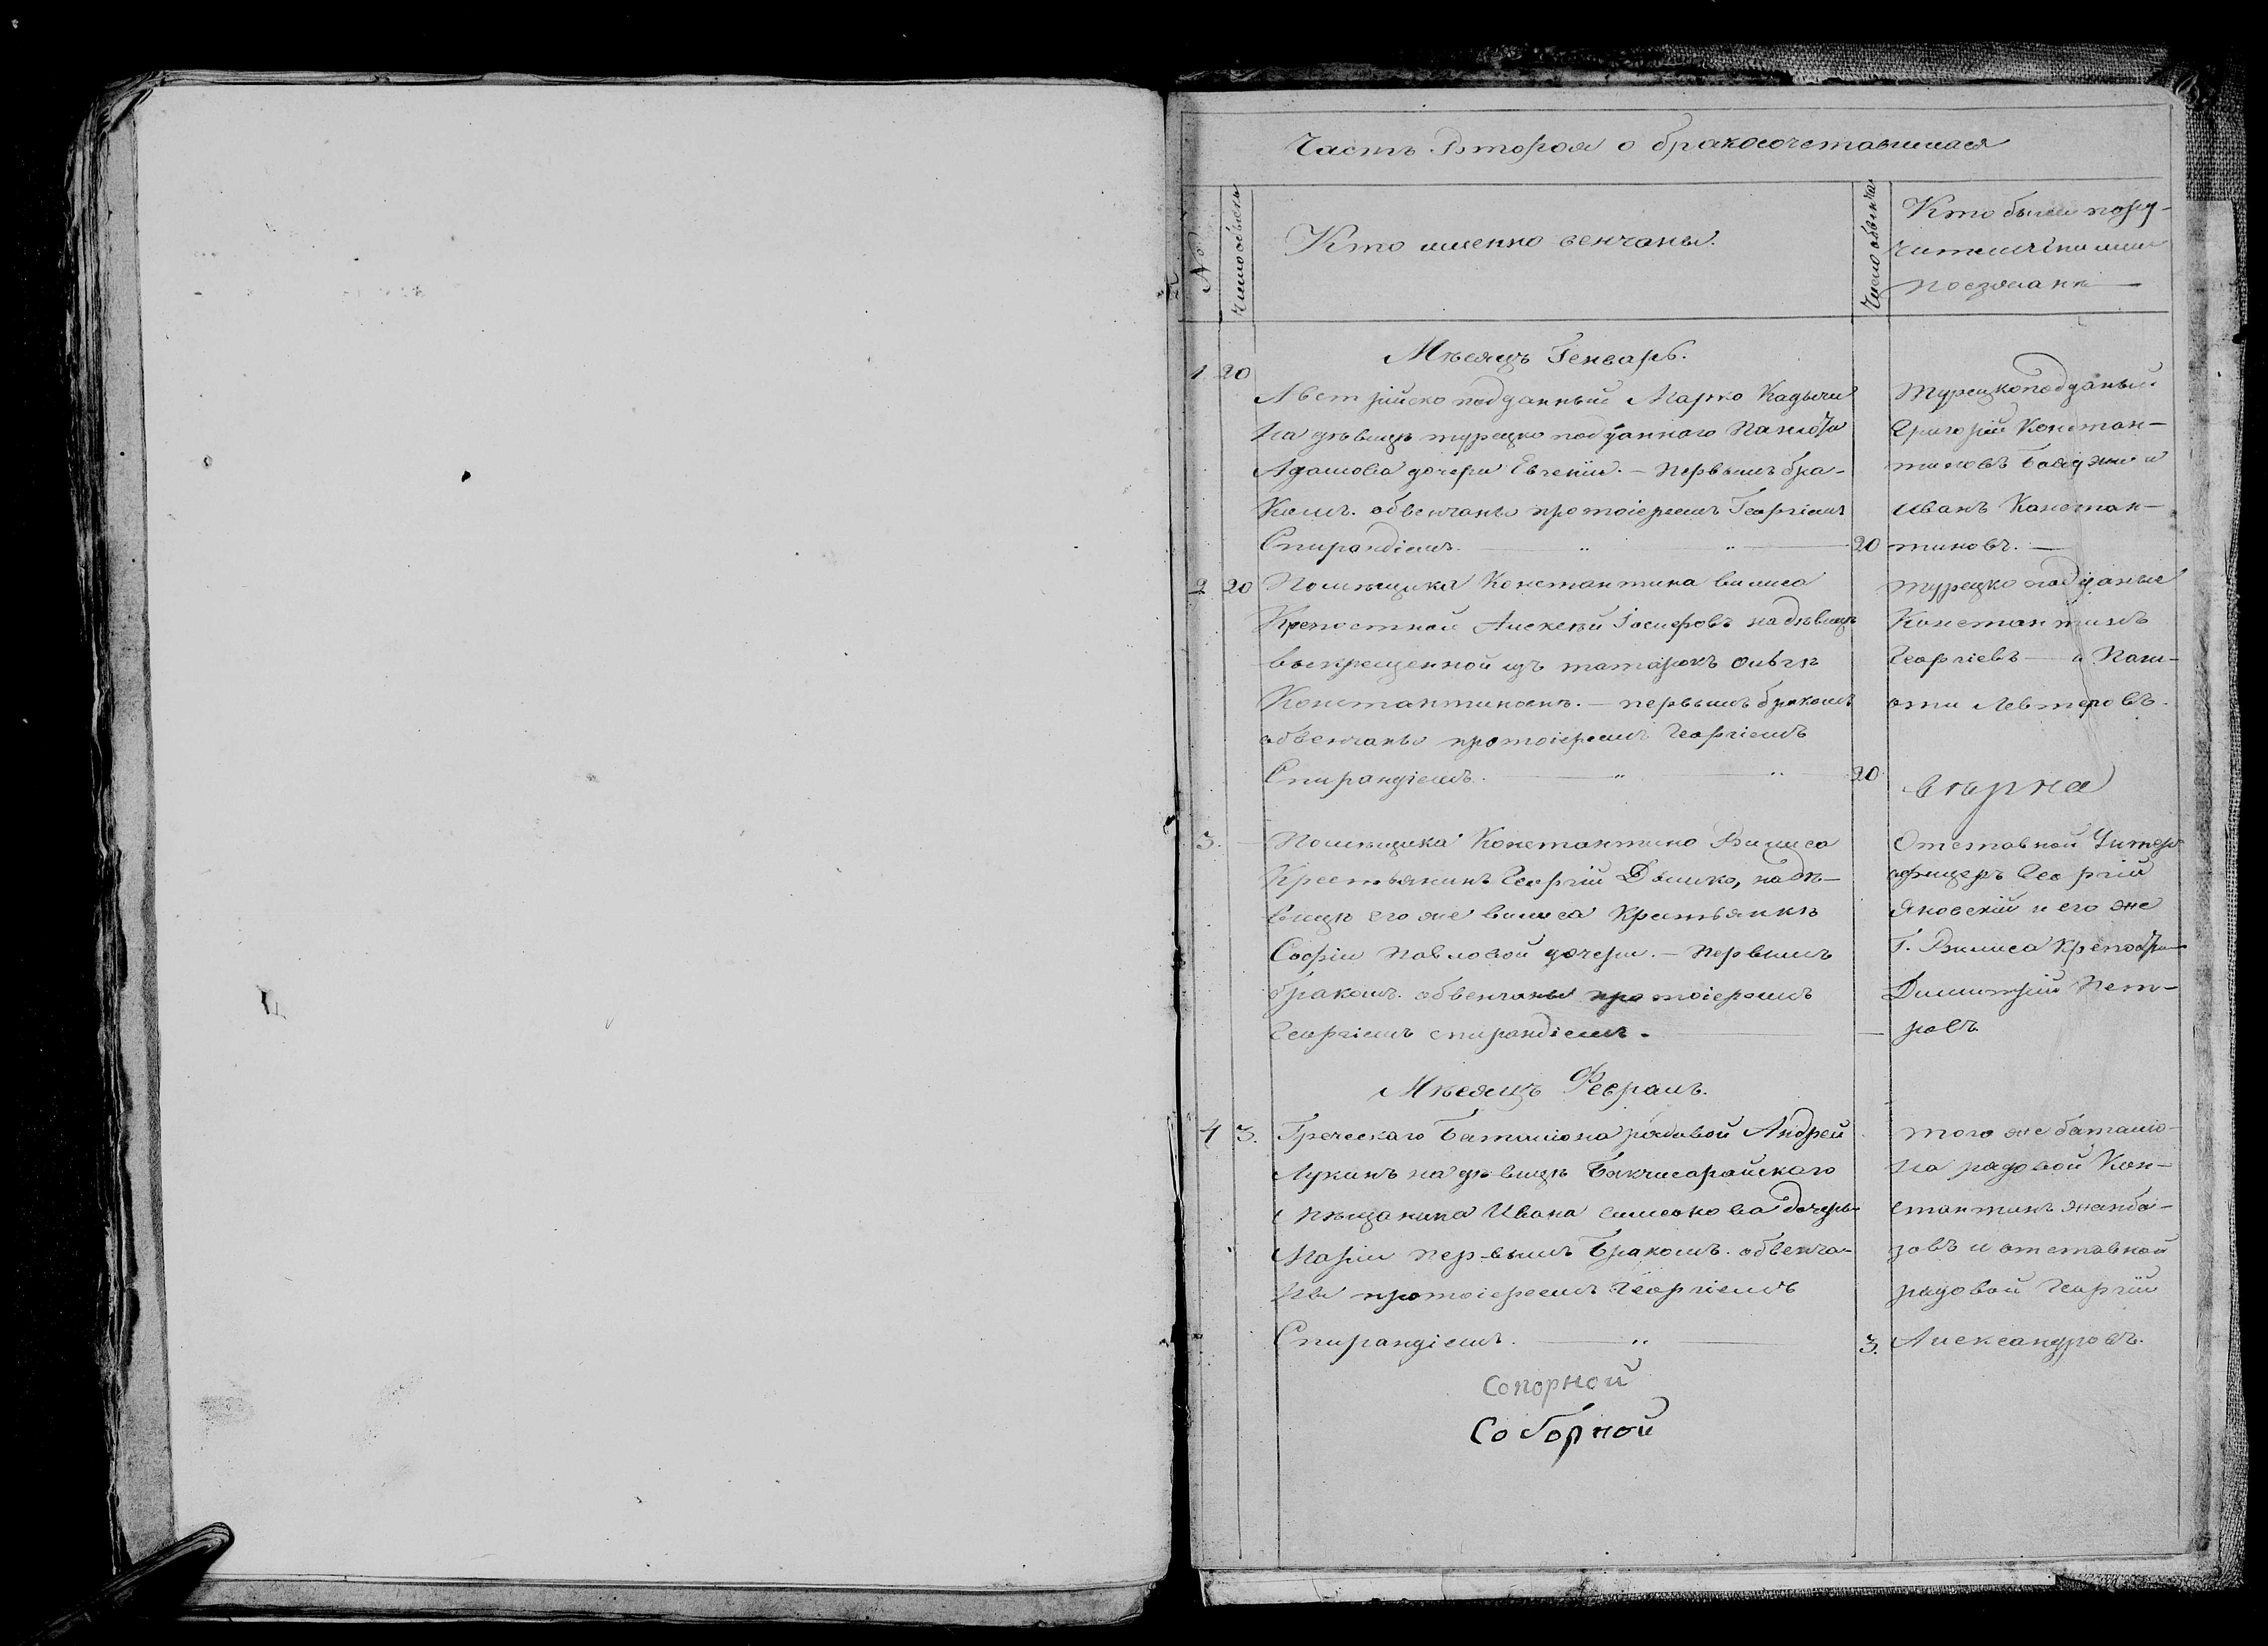 Часть Вторая о бракосочетавшихся
№
Число обвенч
Кто именно венчаны.
Число обвенча
Кто были пору-
чители
по
Мѣсяцъ Генварь.
1 20
Австрійско подданный Марко Кадычи
на дѣвицѣ турецко подданного Панаіота
Адамова дочери Евгеніи. — первымъ бра-
комъ. обвенчаны протоіереемъ Георгіемъ
Спирандіемъ. 20
Турецкоподданый
Григорій Констан-
тиновъ и
Иванъ Констан-
тиновъ. —
2 20 Помѣщика Константина вилиса
Крепостной Алексѣй Іосифовъ на дѣвицѣ
выкрещенной изъ татарокъ Ольгѣ
Константиновнѣ. — первымъ бракомъ
обвенчаны протоіереемъ Георгіемъ
Спирандіемъ. 20
турецко подданые
Константинъ
Георгіевъ — и Пани-
оти Левтеровъ.
3. — Помѣщика Константина Вилиса
Крестьянинъ Георгій Дымко, на дѣ-
вицѣ его же вилиса Крестьянкѣ
Софіи Павловой дочери. — первымъ
бракомъ. обвенчаны протоіереемъ
Георгіемъ спирандіемъ. —
Отставной Унтер
офицеръ Георгій
Яновскій и его же
Г. Вилиса
Димитрій Пет-
ровъ
Мѣсяцъ Февраль.
4 3. Греческаго Баталіона рядовой Андрей
Лукинъ на дѣвицѣ Бакчисарайскаго
мѣщанина Ивана симеонова дочери
Маріи первымъ Бракомъ. обвенча-
ны протоіереемъ Георгіемъ
Спирандіемъ. 3.
того же баталіо-
на рядовой Кон-
стантинъ жамба-
зовъ и отставной
рядовой Георгій
Александровъ.
Сопорной
Соборной